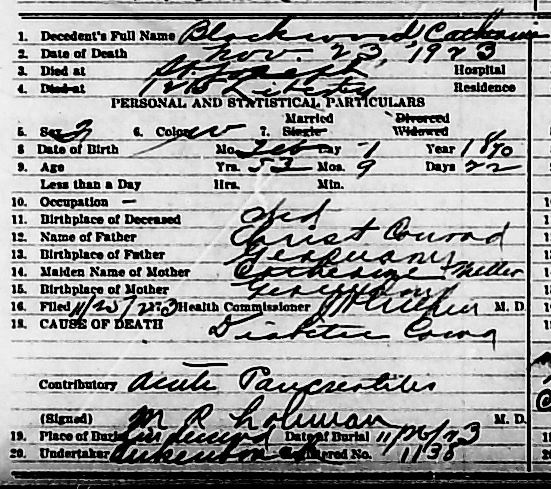 1. Decedent's Full Name Blackwood, Catherine
2. Date of Death Nov. 23, 1923
3. Died at St. Joseph Hospital
4. Died at 1215 Liberty Residence
PERSONAL AND STATISTICAL PARTICULARS
Married Divorced
5. Sex F 6. Color W 7. Single Widowed
8 Date of Birth Mo. Feb Day 1 Year 1870
9. Age Yrs. 53 Mos. 9 Days 22
Less than a Day Hrs. Min.
10. Occupation —
11. Birthplace of Deceased Ind
12. Name of Father Christ Conrad
13. Birthplace of Father Germany
14. Maiden Name of Mother Catherine Miller
15. Birthplace of Mother Germany
16. Filed 11/25/23 Health Commissioner M. D.
18. CAUSE OF DEATH Diabetic Coma
Contributory Acute Pancreatitis
(Signed) M R Lohman M. D.
19. Place of Burial Lindenwood Date of Burial 11/26/23
20. Undertaker Numbered No. 1138